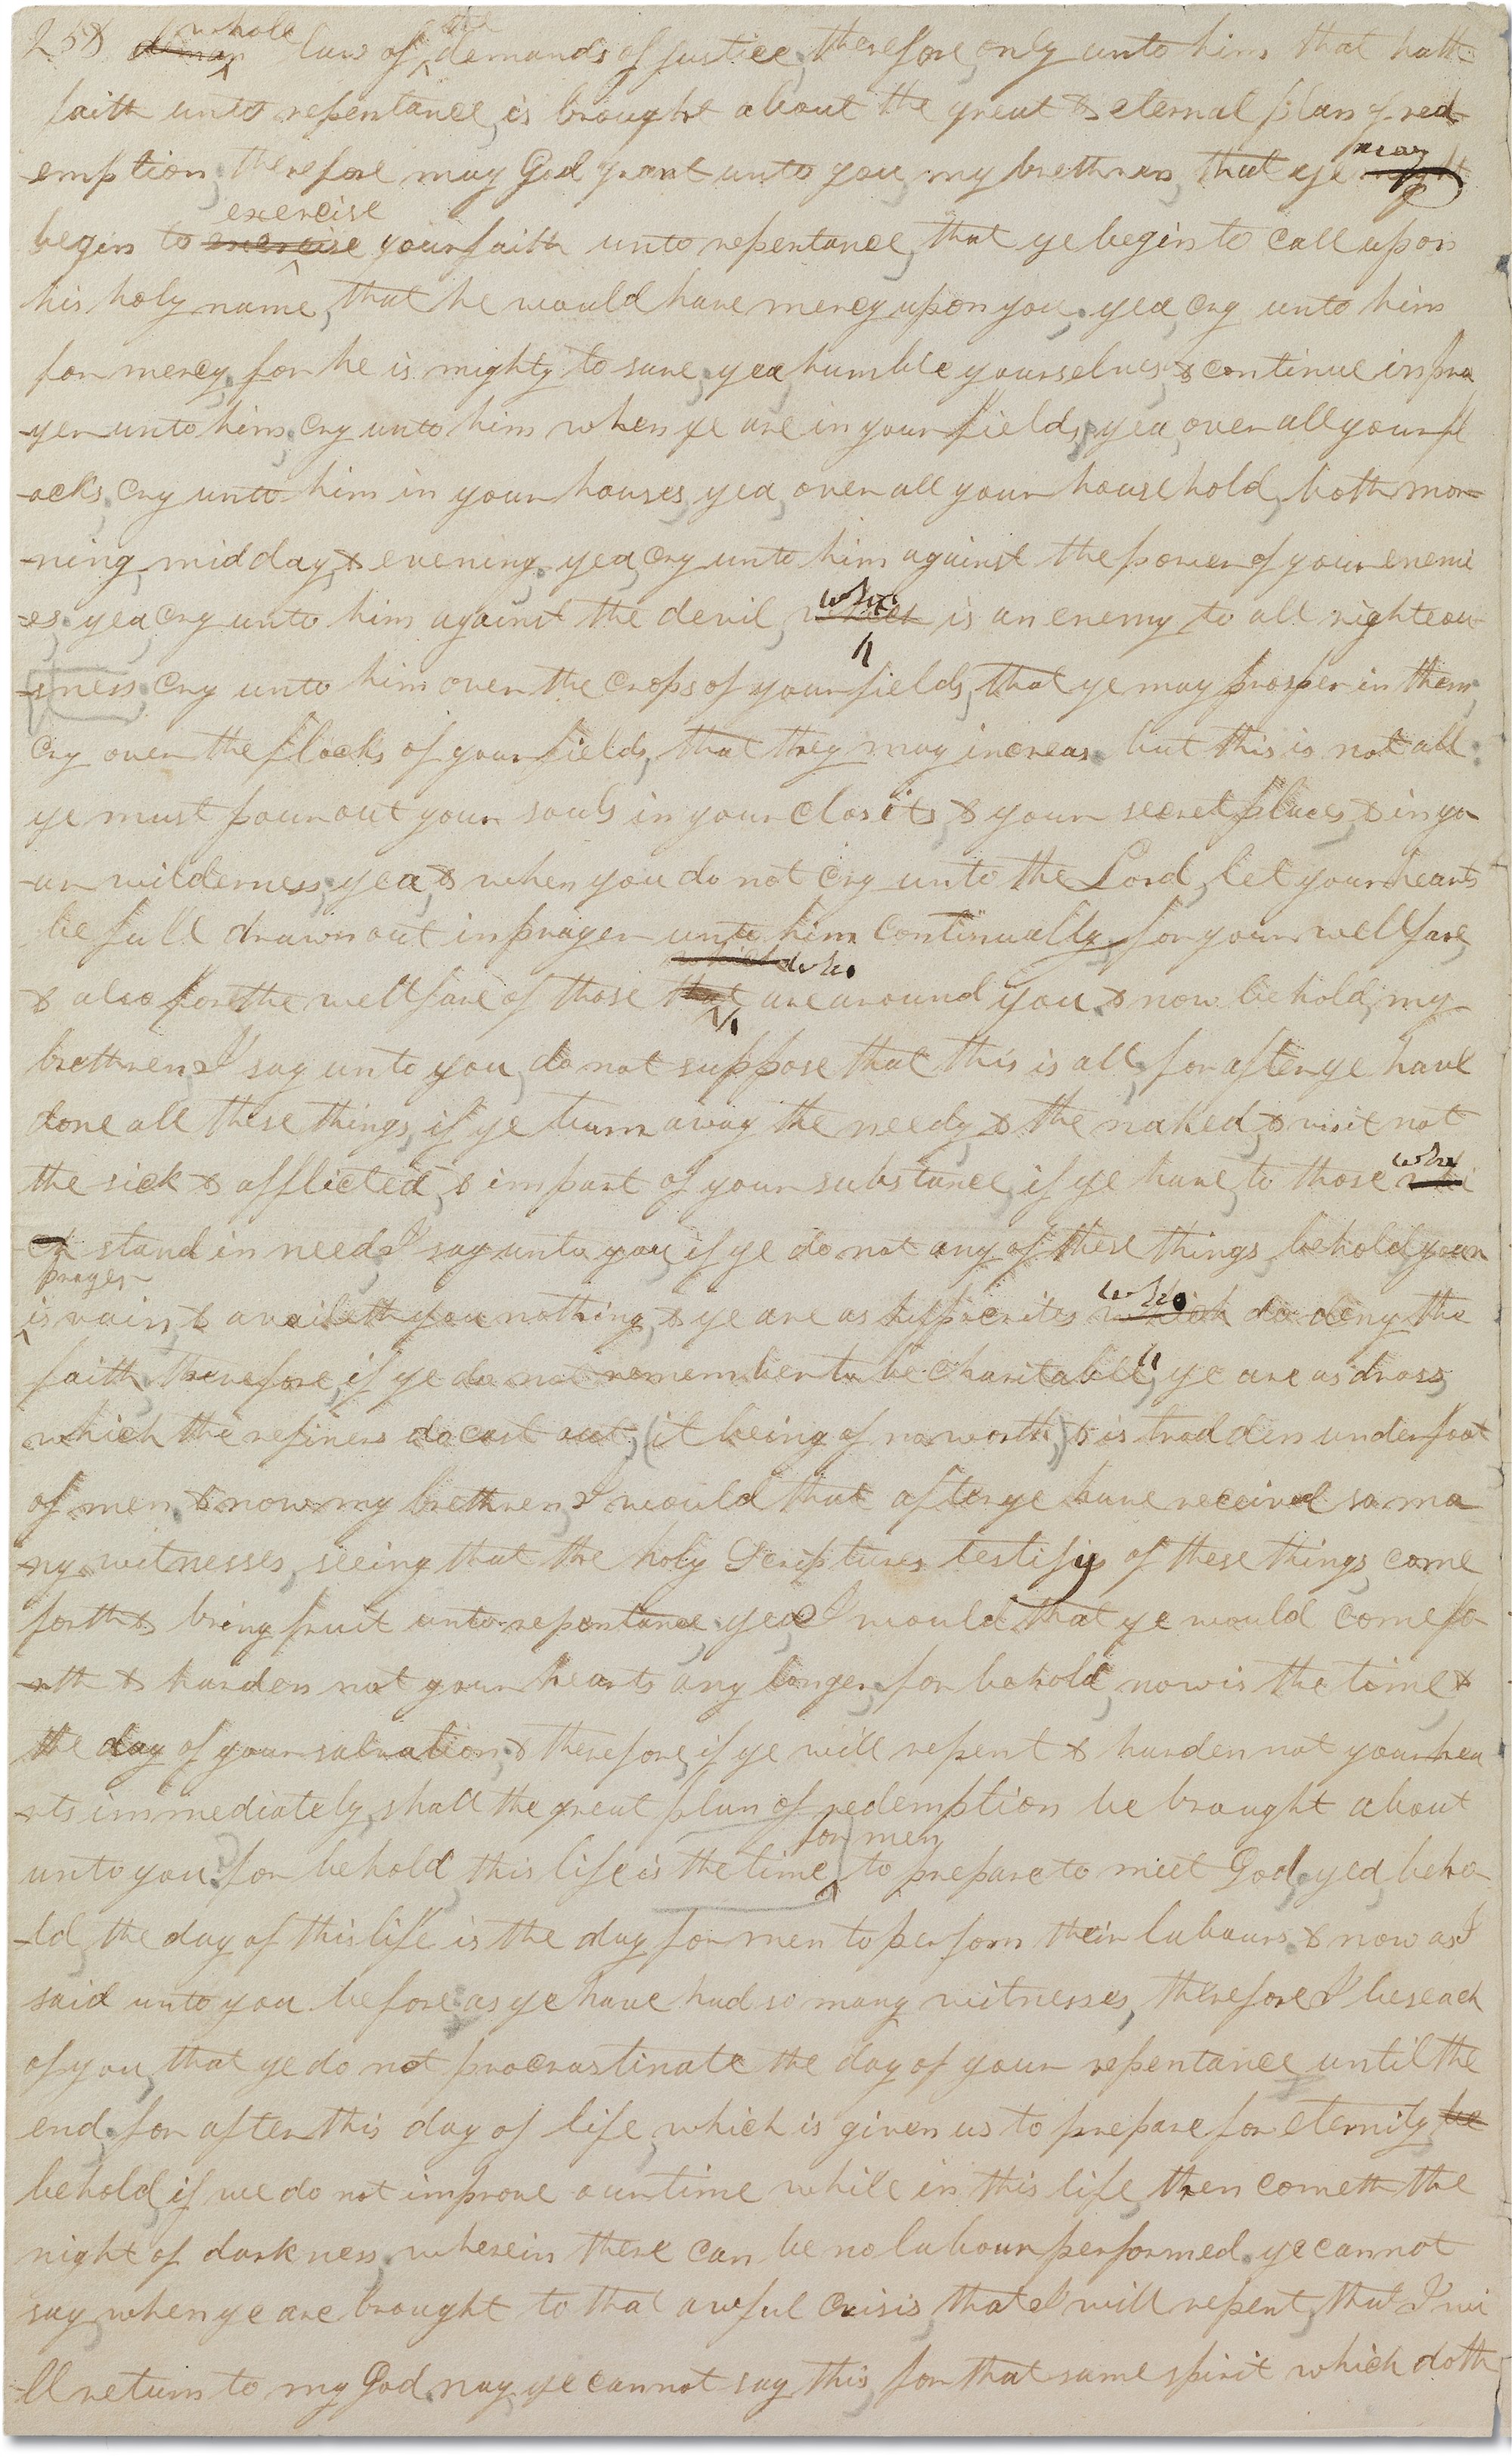 258 deman whole law of the demands of justice, therefore, only unto him that hath
faith unto repentance, is brought about the great & eternal plan of red-
-emption, therefore may God grant unto you, my brethren, that ye might may
begin to exercise exercise your faith unto repentance, that ye begin to call upon
his holy name, that he would have mercy upon you. yea, cry unto him
for mercy, for he is mighty to save, yea, humble yourselves, & continue in pra
-yer unto him, cry unto him when ye are in your fields, yea, over all your fl
-ocks, cry unto him in your houses, yea, over all your household, both mor-
-ning, mid day, & evening. yea, cry unto him against the power of your enemi
-es, yea, cry unto him against the devil, which who is an enemy to all righteou
-sness, cry unto him over the crops of your fields, that ye may prosper in them,
cry over the flocks of your fields, that they may increas. but this is not all:
ye must pour out your souls in your closits, & your secret places, & in yo
-ur wilderness, yea, & when you do not cry unto the Lord, let your hearts
be full drawn out in prayer unto him continually, for your wellfare,
& also for the wellfare of those that which who are around you, & now behold, my
brethren, I say unto you, do not suppose that this is all, for after ye have
done all these things, if ye turn away the needy, & the naked, & visit not
the sick & afflicted, & impart of your substance, if ye have, to those whi who
ch stand in need, I say unto you, if ye do not any of these things, behold, your
prayer is vain, & availeth you nothing, & ye are as hippocrites which who do deny the
faith, therefore, if ye do not remember to be charitable, ye are as dross,
which the refiners do cast out, (it being of no worth,) & is trodden underfoot
of men, & now my brethren, I would that after ye have received so ma
-ny witnesses, seeing that the holy Scriptures testify of these things, come
forth & bring fruit unto repentance, yea, I would that ye would come fo
-rth & harden not your hearts any longer, for behold, now is the time &
the day of your salvation, & therefore, if ye will repent & harden not your hea
-rts immediately, shall the great plan of redemption be brought about
unto you. for behold, this life is the time for men to prepare to meet God, yea, beho
-ld, the day of this life is the day for men to perform their labours. & now as I
said unto you before, as ye have had so many witnesses, therefore, I beseach
of you, that ye do not procrastinate the day of your repentance until the
end, for after this day of life, which is given us to prepare for eternity, be
behold, if we do not improve our time while in this life, then cometh the
night of darkness, wherein there can be no labour performed. ye cannot
say, when ye are brought to that awful crisis, that I will repent, that I wi
-ll return to my God. nay, ye cannot say this, for that same spirit which doth